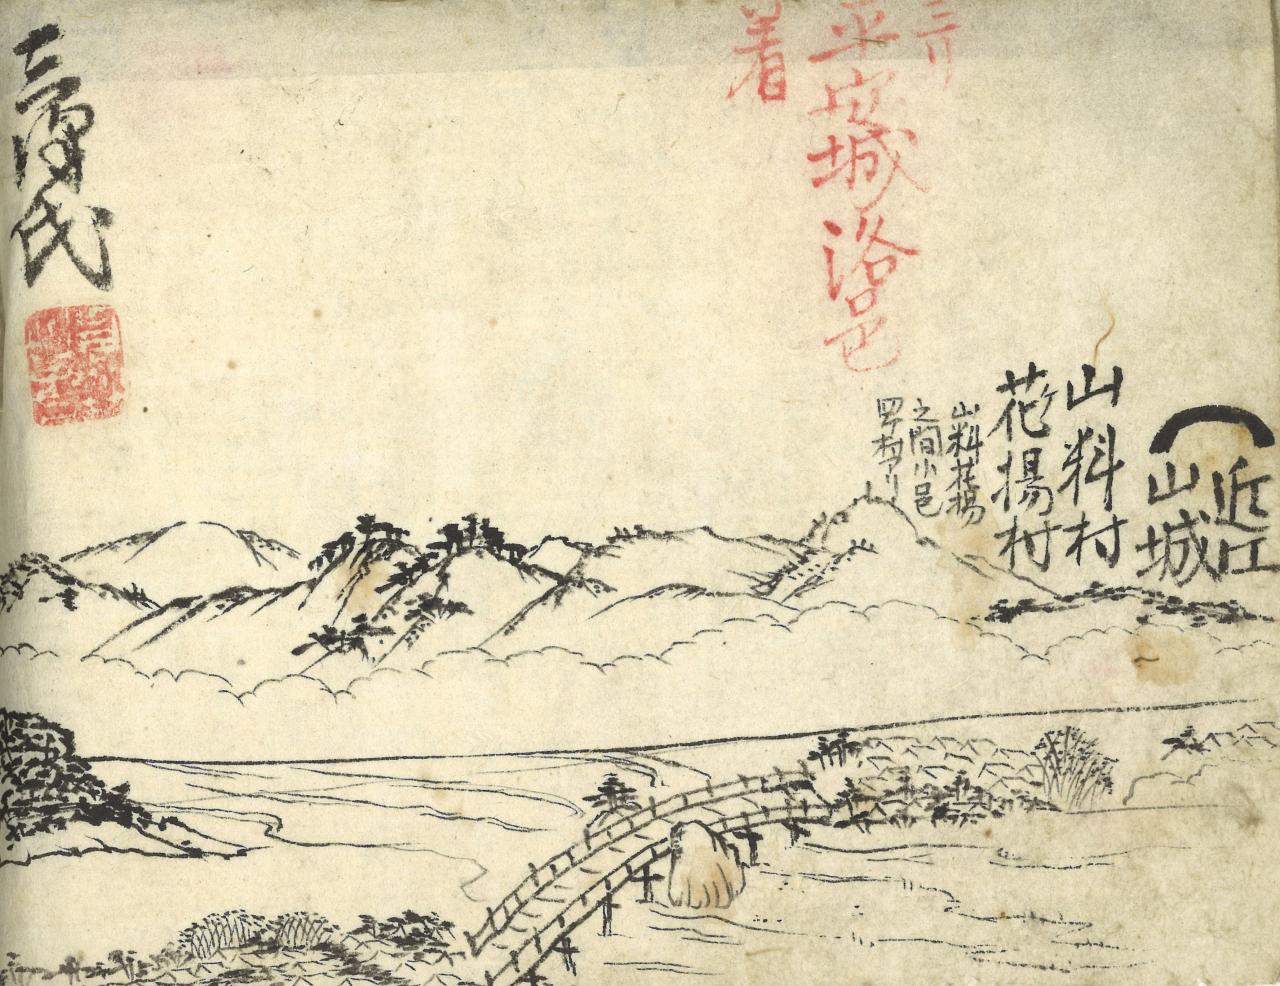 近江
山城
山料村
花揚村
山料花揚
之間小邑
平安城洛邑
着
三澤氏